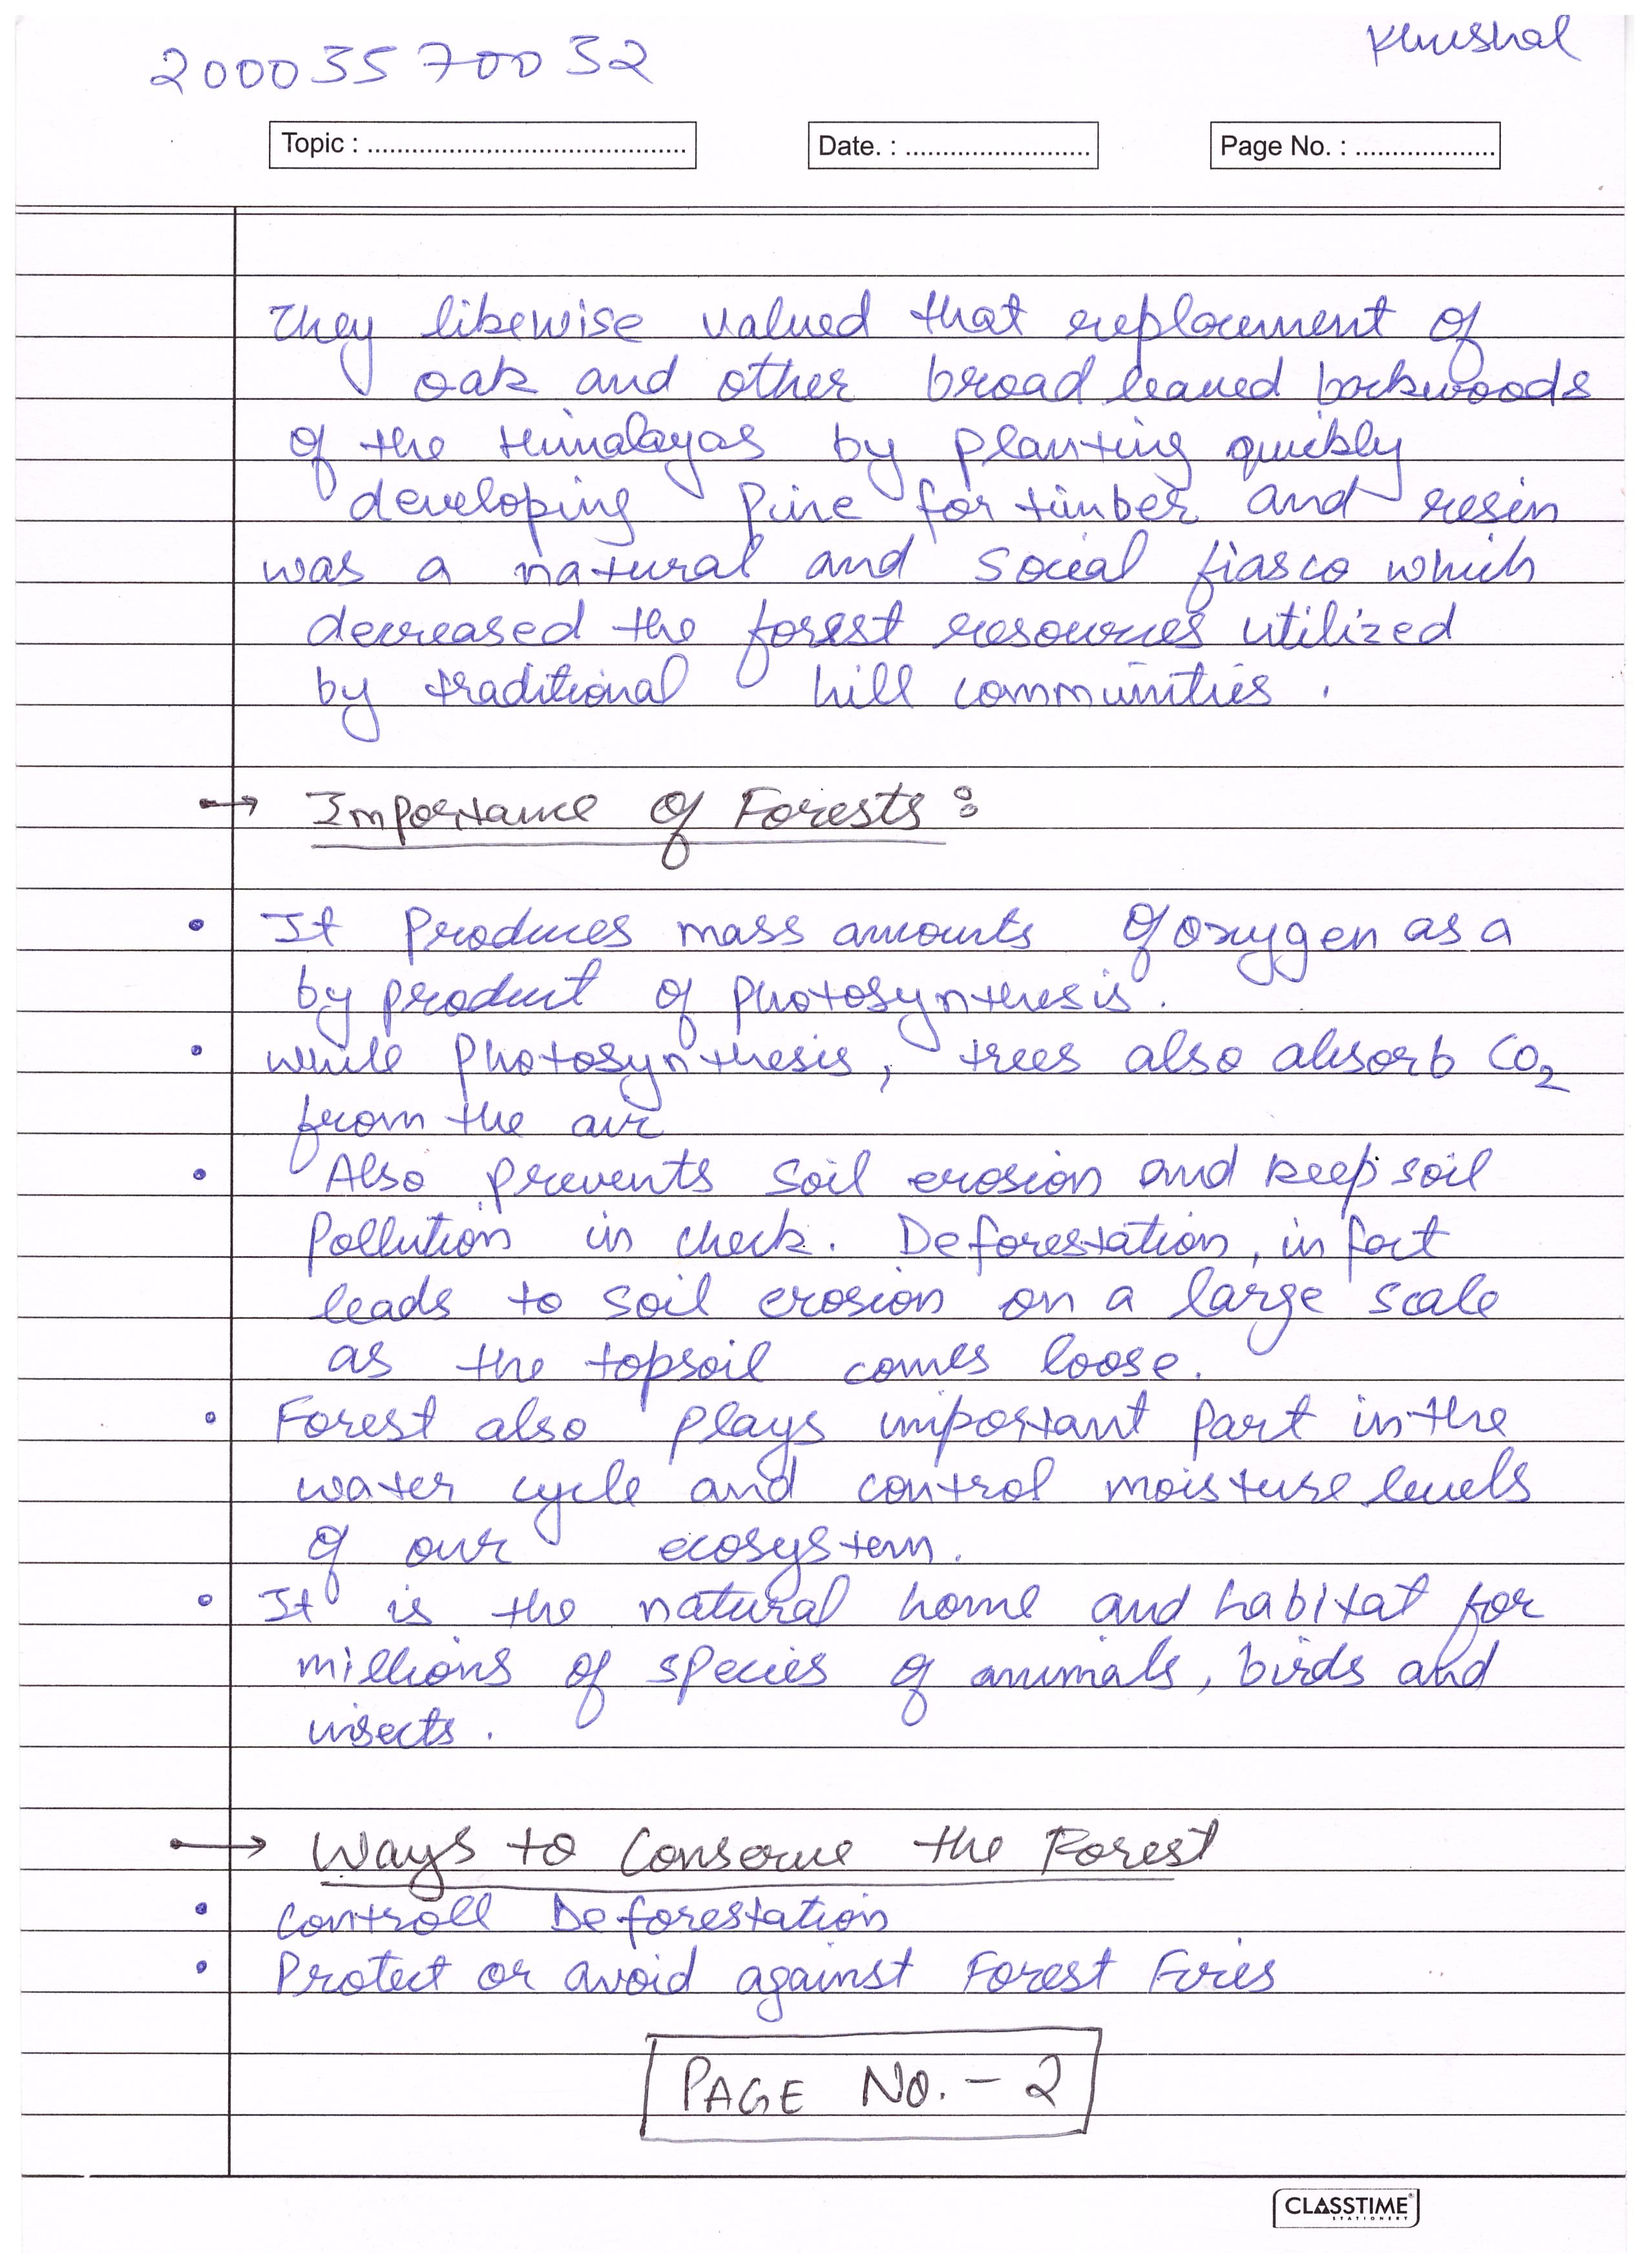 20003570032
Khushal
Topic : ............................................
Date. : .........................
Page No. : ...................
They likewise valued that replacement of
oak and other broad leaved backwoods
of the Himalayas by planting quickly
developing pine for timber and resin
was a natural and social fiasco which
decreased the forest resources utilized
by traditional hill communities.
→ Importance of Forests :
• It produces mass amounts of oxygen as a
by product of photosynthesis.
• While photosynthesis, trees also absorb CO₂
from the air
• Also prevents soil erosion and keep soil
pollution in check. Deforestation, in fact
leads to soil erosion on a large scale
as the topsoil comes loose.
• Forest also plays important part in the
water cycle and control moisture levels
of our ecosystem.
• It is the natural home and habitat for
millions of species of animals, birds and
insects.
→ Ways to Conserve the Forest
• Controll Deforestation
• Protect or avoid against Forest Fires
PAGE NO. - 2
CLASSTIME
STATIONERY